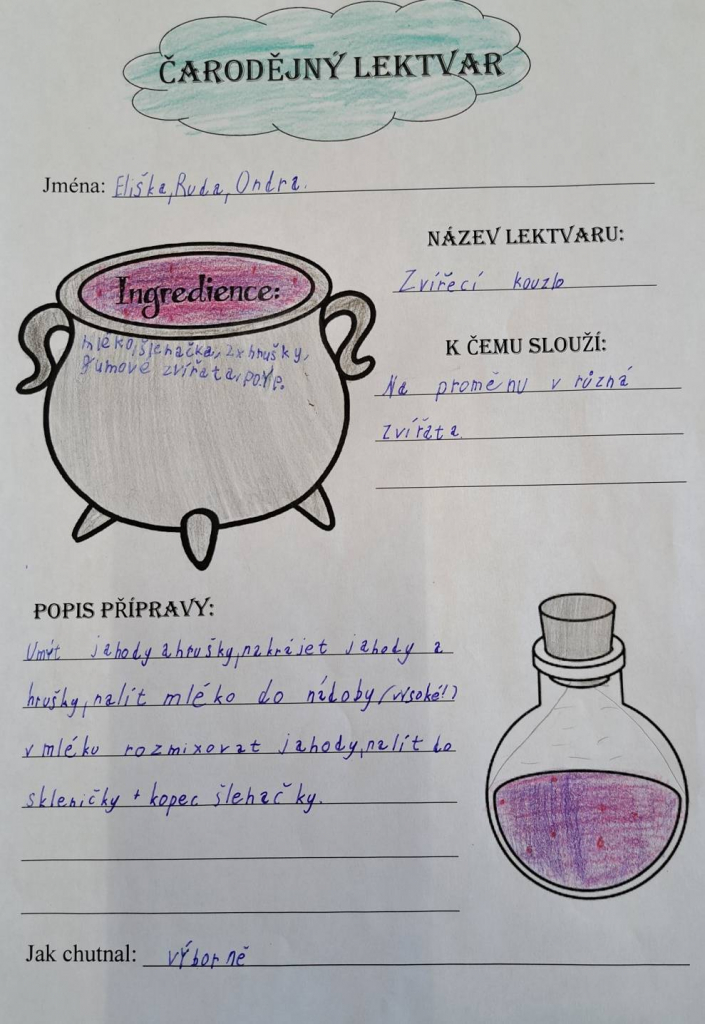 ČARODĚJNÝ LEKTVAR
Jména: Eliška, Ruda, Ondra.
NÁZEV LEKTVARU:
Zvířecí kouzlo
Ingredience:
mléko, šlehačka, 2x hrušky,
gumové zvířata,
K ČEMU SLOUŽÍ:
Na proměnu v různá
zvířata
POPIS PŘÍPRAVY:
Umýt jahody a hrušky, nakrájet jahody a
hrušky, nalít mléko do nádoby (vysoké!)
v mléku rozmixovat jahody, nalít do
skleničky + kopec šlehačky.
Jak chutnal: výborně